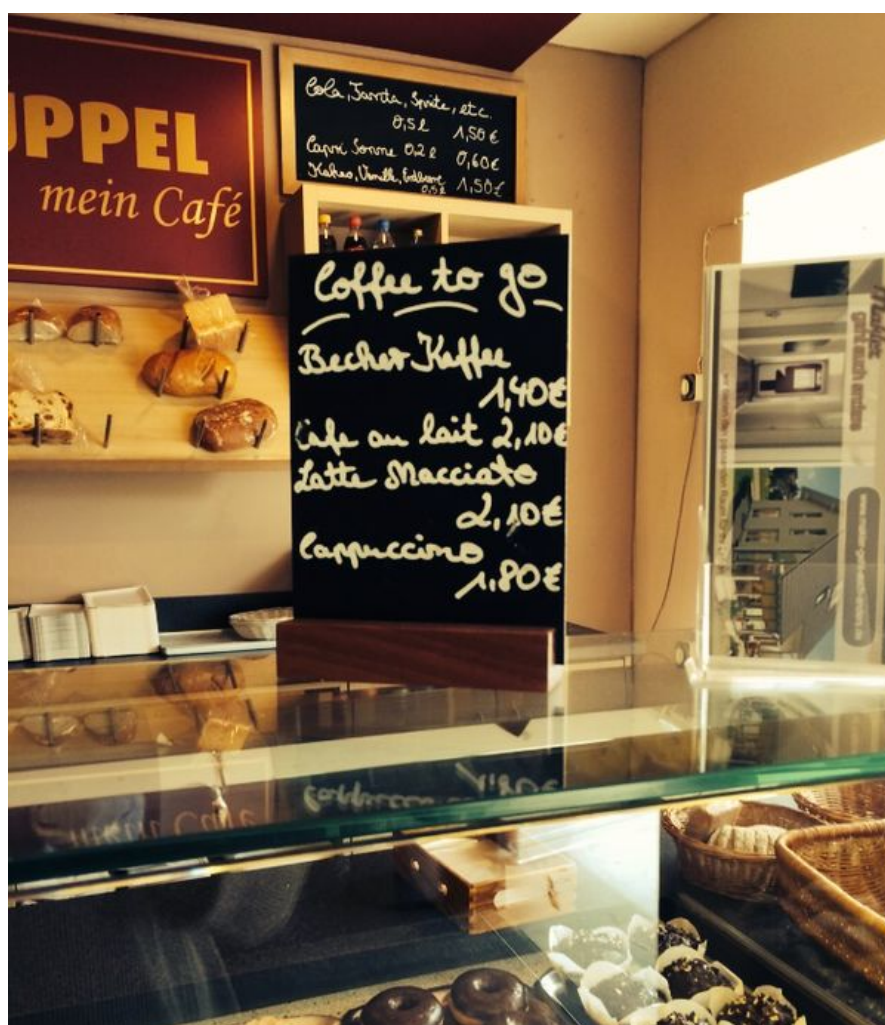 UPPEL
mein Café
Cola, Fanta, Sprite, etc.
0,5 l 1,50 €
Capri Sonne 0,2 l 0,60 €
Kakao, Vanille, Erdbeere
0,5 l 1,50 €
Coffee to go
Becher Kaffee
1,40 €
Cafe au lait 2,10 €
Latte Macciato
2,10 €
Cappuccino
1.80 €
geht auch anders